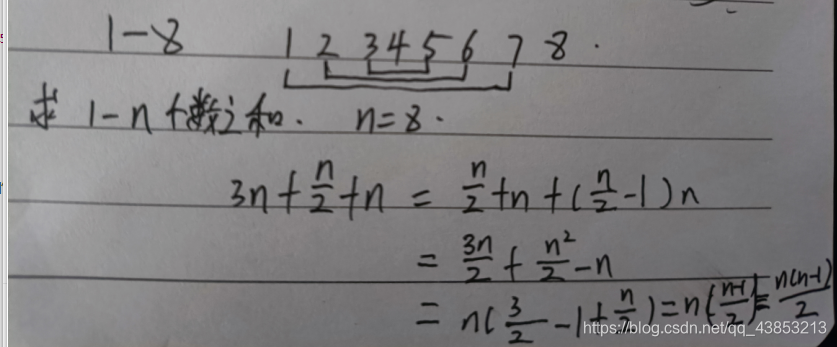 1-8 1 2 3 4 5 6 7 8 .
求 1-n 个数之和. n=8.
3n+n/2+n = n/2+n+(n/2-1)n
= 3n/2+n²/2-n
= n(3/2-1+n/2)=n(n-1/2)=n(n-1)/2
https://blog.csdn.net/qq_43853213